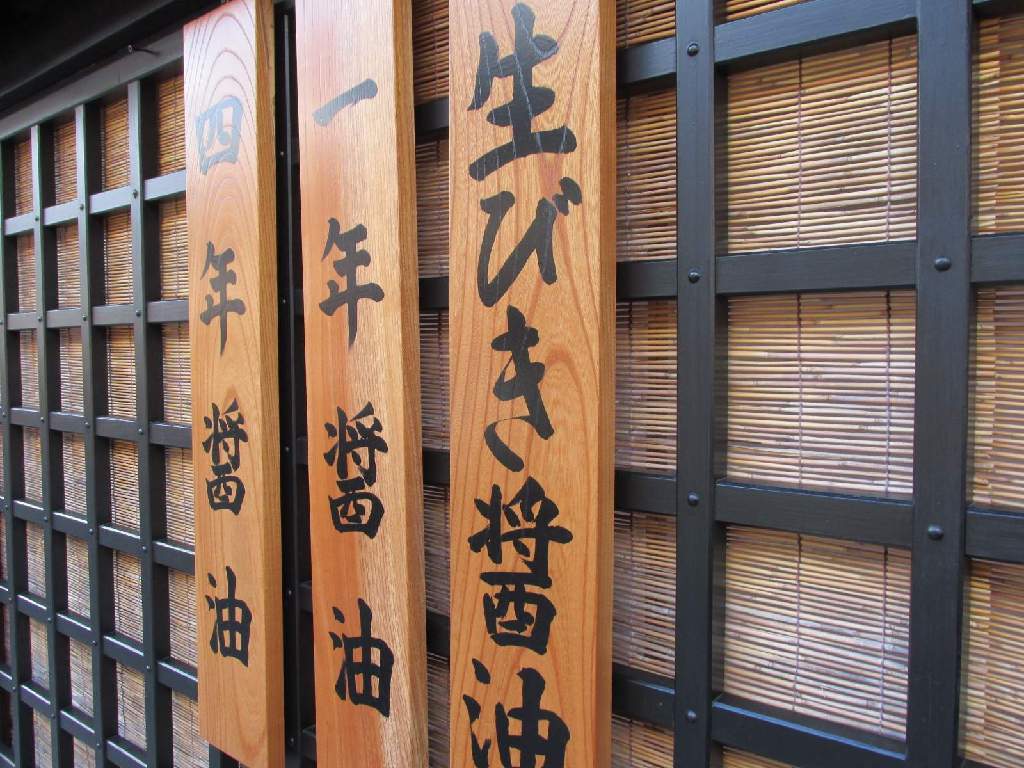 生びき醤油
一年醤油
四年醤油